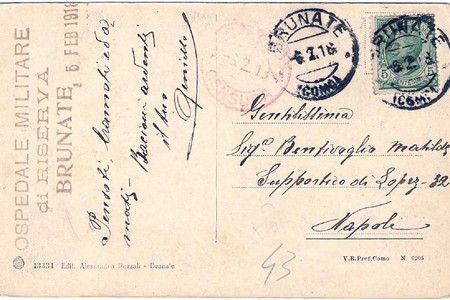 OSPEDALE MILITARE
di RISERVA
BRUNATE 6 FEB 1918
Pensoti, bramoti ed a
mati - Bacioni ardenti
il tuo
BRUNATE
(COMO)
BRUNATE
(COMO)
Gentilissima
Sig.ª Bentivoglio Matilde
Supportico di Lopez-32
Napoli
43
13334 Edit. Alessandro Pozzali - Brunate
V.B. Pref. Como N 6205